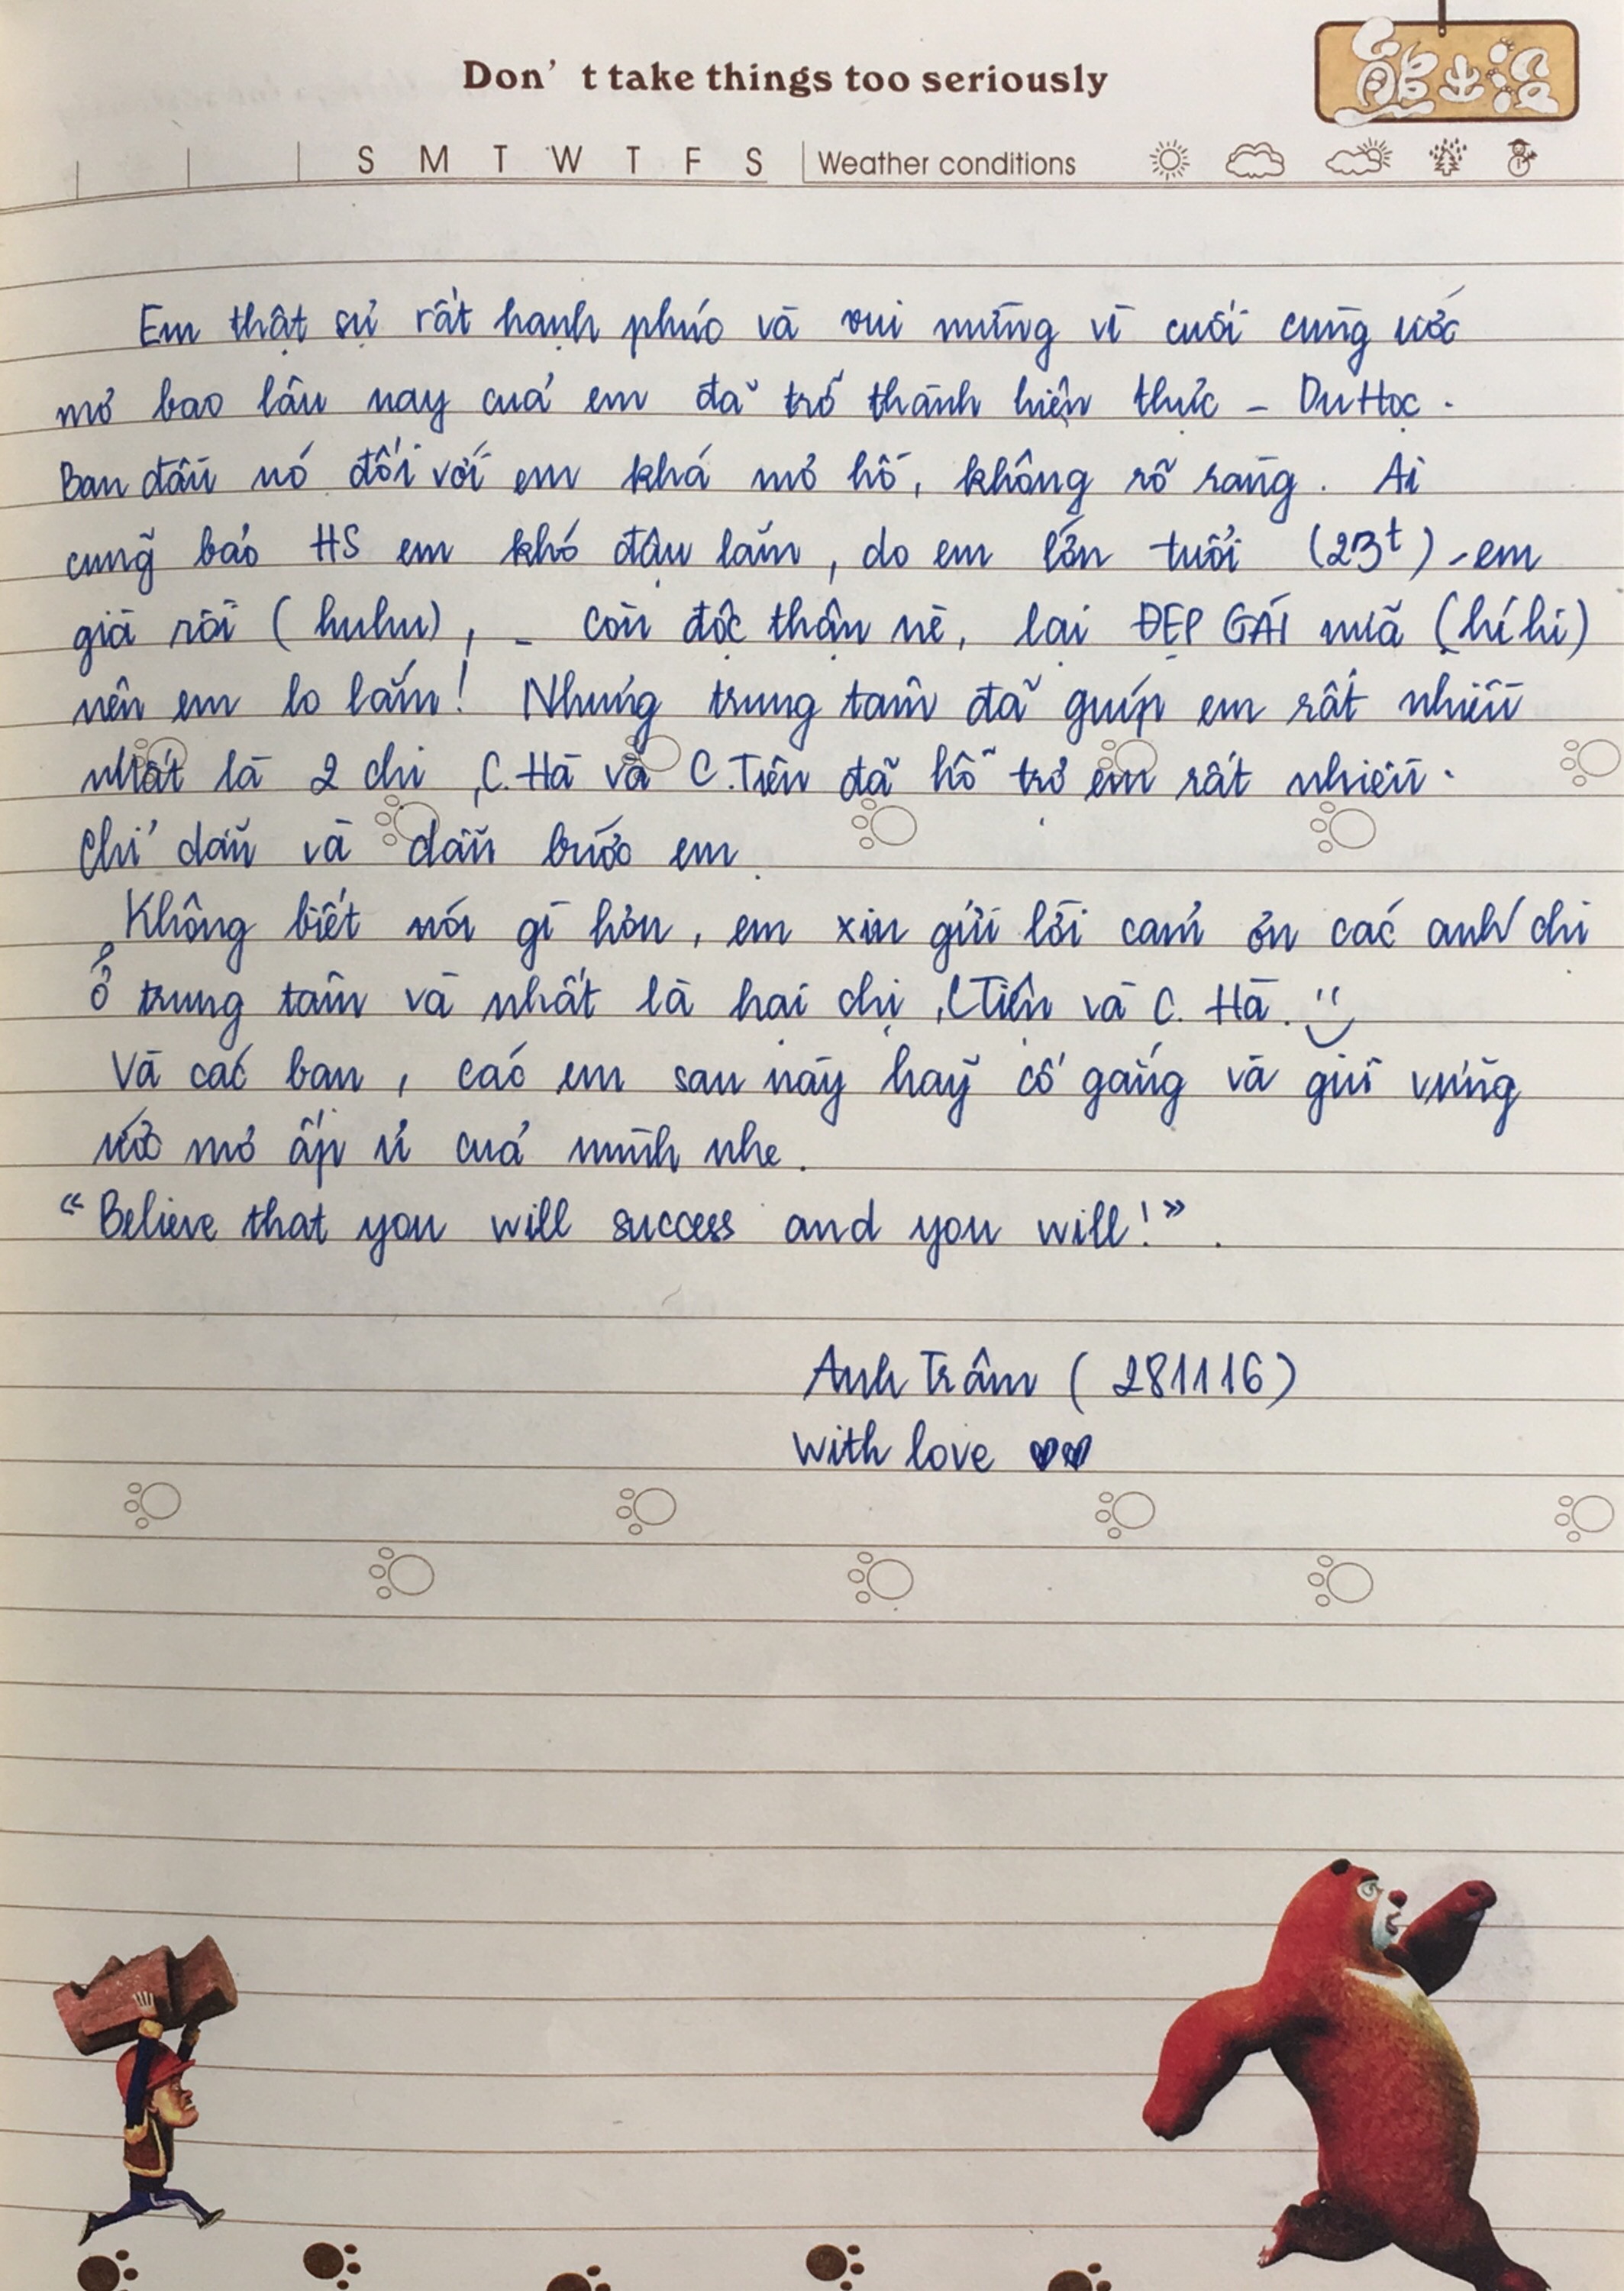 Don't take things too seriously
熊出没
S M T W T F S Weather conditions
Em thật sự rất hạnh phúc và vui mừng vì cuối cùng ước
mơ bao lâu nay của em đã trở thành hiện thực - Du Học.
Ban đầu nó đối với em khá mơ hồ, không rõ ràng. Ai
cũng bảo HS em khó đậu lắm, do em lớn tuổi (23t) - em
già rồi (huhu), - còn độc thân nè, lại ĐẸP GÁI nữa (híhi)
nên em lo lắm! Nhưng trung tâm đã giúp em rất nhiều
nhất là 2 chị, C. Hà và C. Tiên đã hỗ trợ em rất nhiều.
Chỉ dẫn và dẫn bước em.
Không biết nói gì hơn, em xin gửi lời cảm ơn các anh/chị
ở trung tâm và nhất là hai chị, C Tiên và C. Hà.
Và các bạn, các em sau này hãy cố gắng và giữ vững
ước mơ ấp ủ của mình nhe.
“Believe that you will success and you will!”.
Anh Trâm (281116)
With love